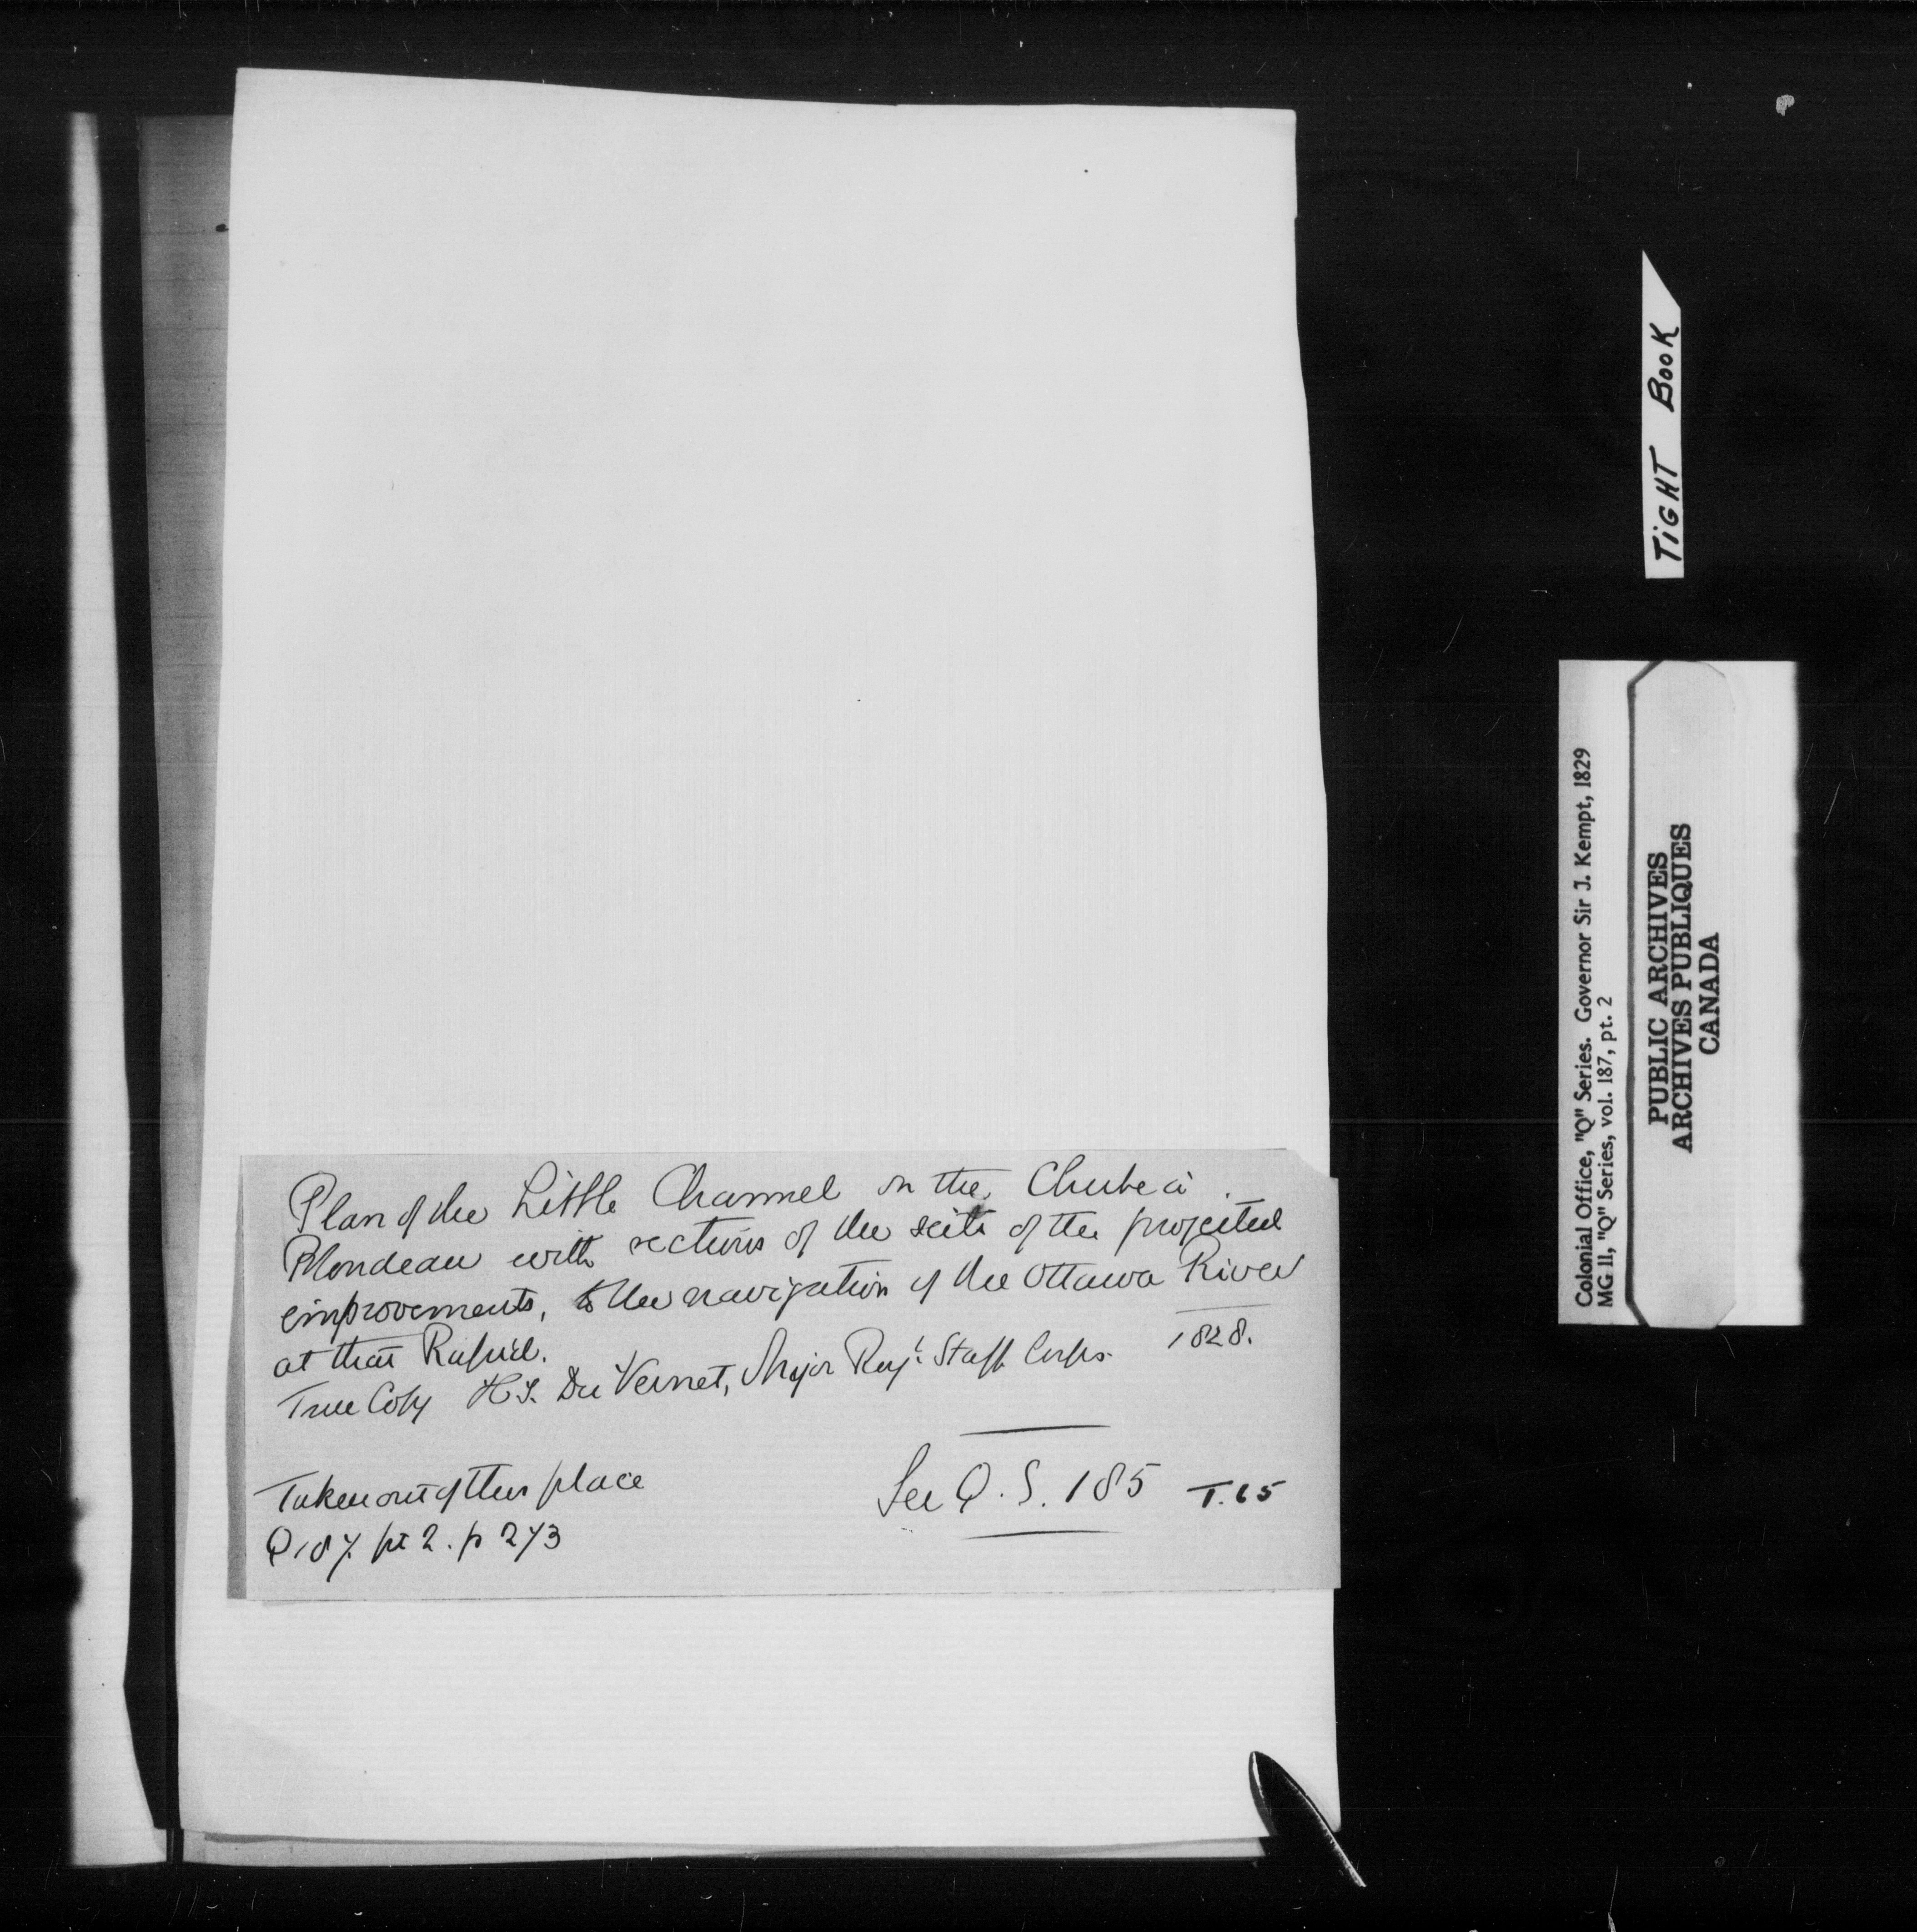 Plan of the Little Channel on the Chute à
Blondeau with sections of the scite of the projected
improvements, to the navigation of the Ottawa River
at that Rapid. 1828.
True Copy H.S. Du Vernet, Major Rayl Staff Corps.
Taken out of this place
Q 187. pt 2. p 273
See Q.S. 185 T.65
TIGHT BOOK
Colonial Office, "Q" Series. Governor Sir J. Kempt, 1829
MG 11, "Q" Series, vol. 187, pt. 2
PUBLIC ARCHIVES
ARCHIVES PUBLIQUES
CANADA